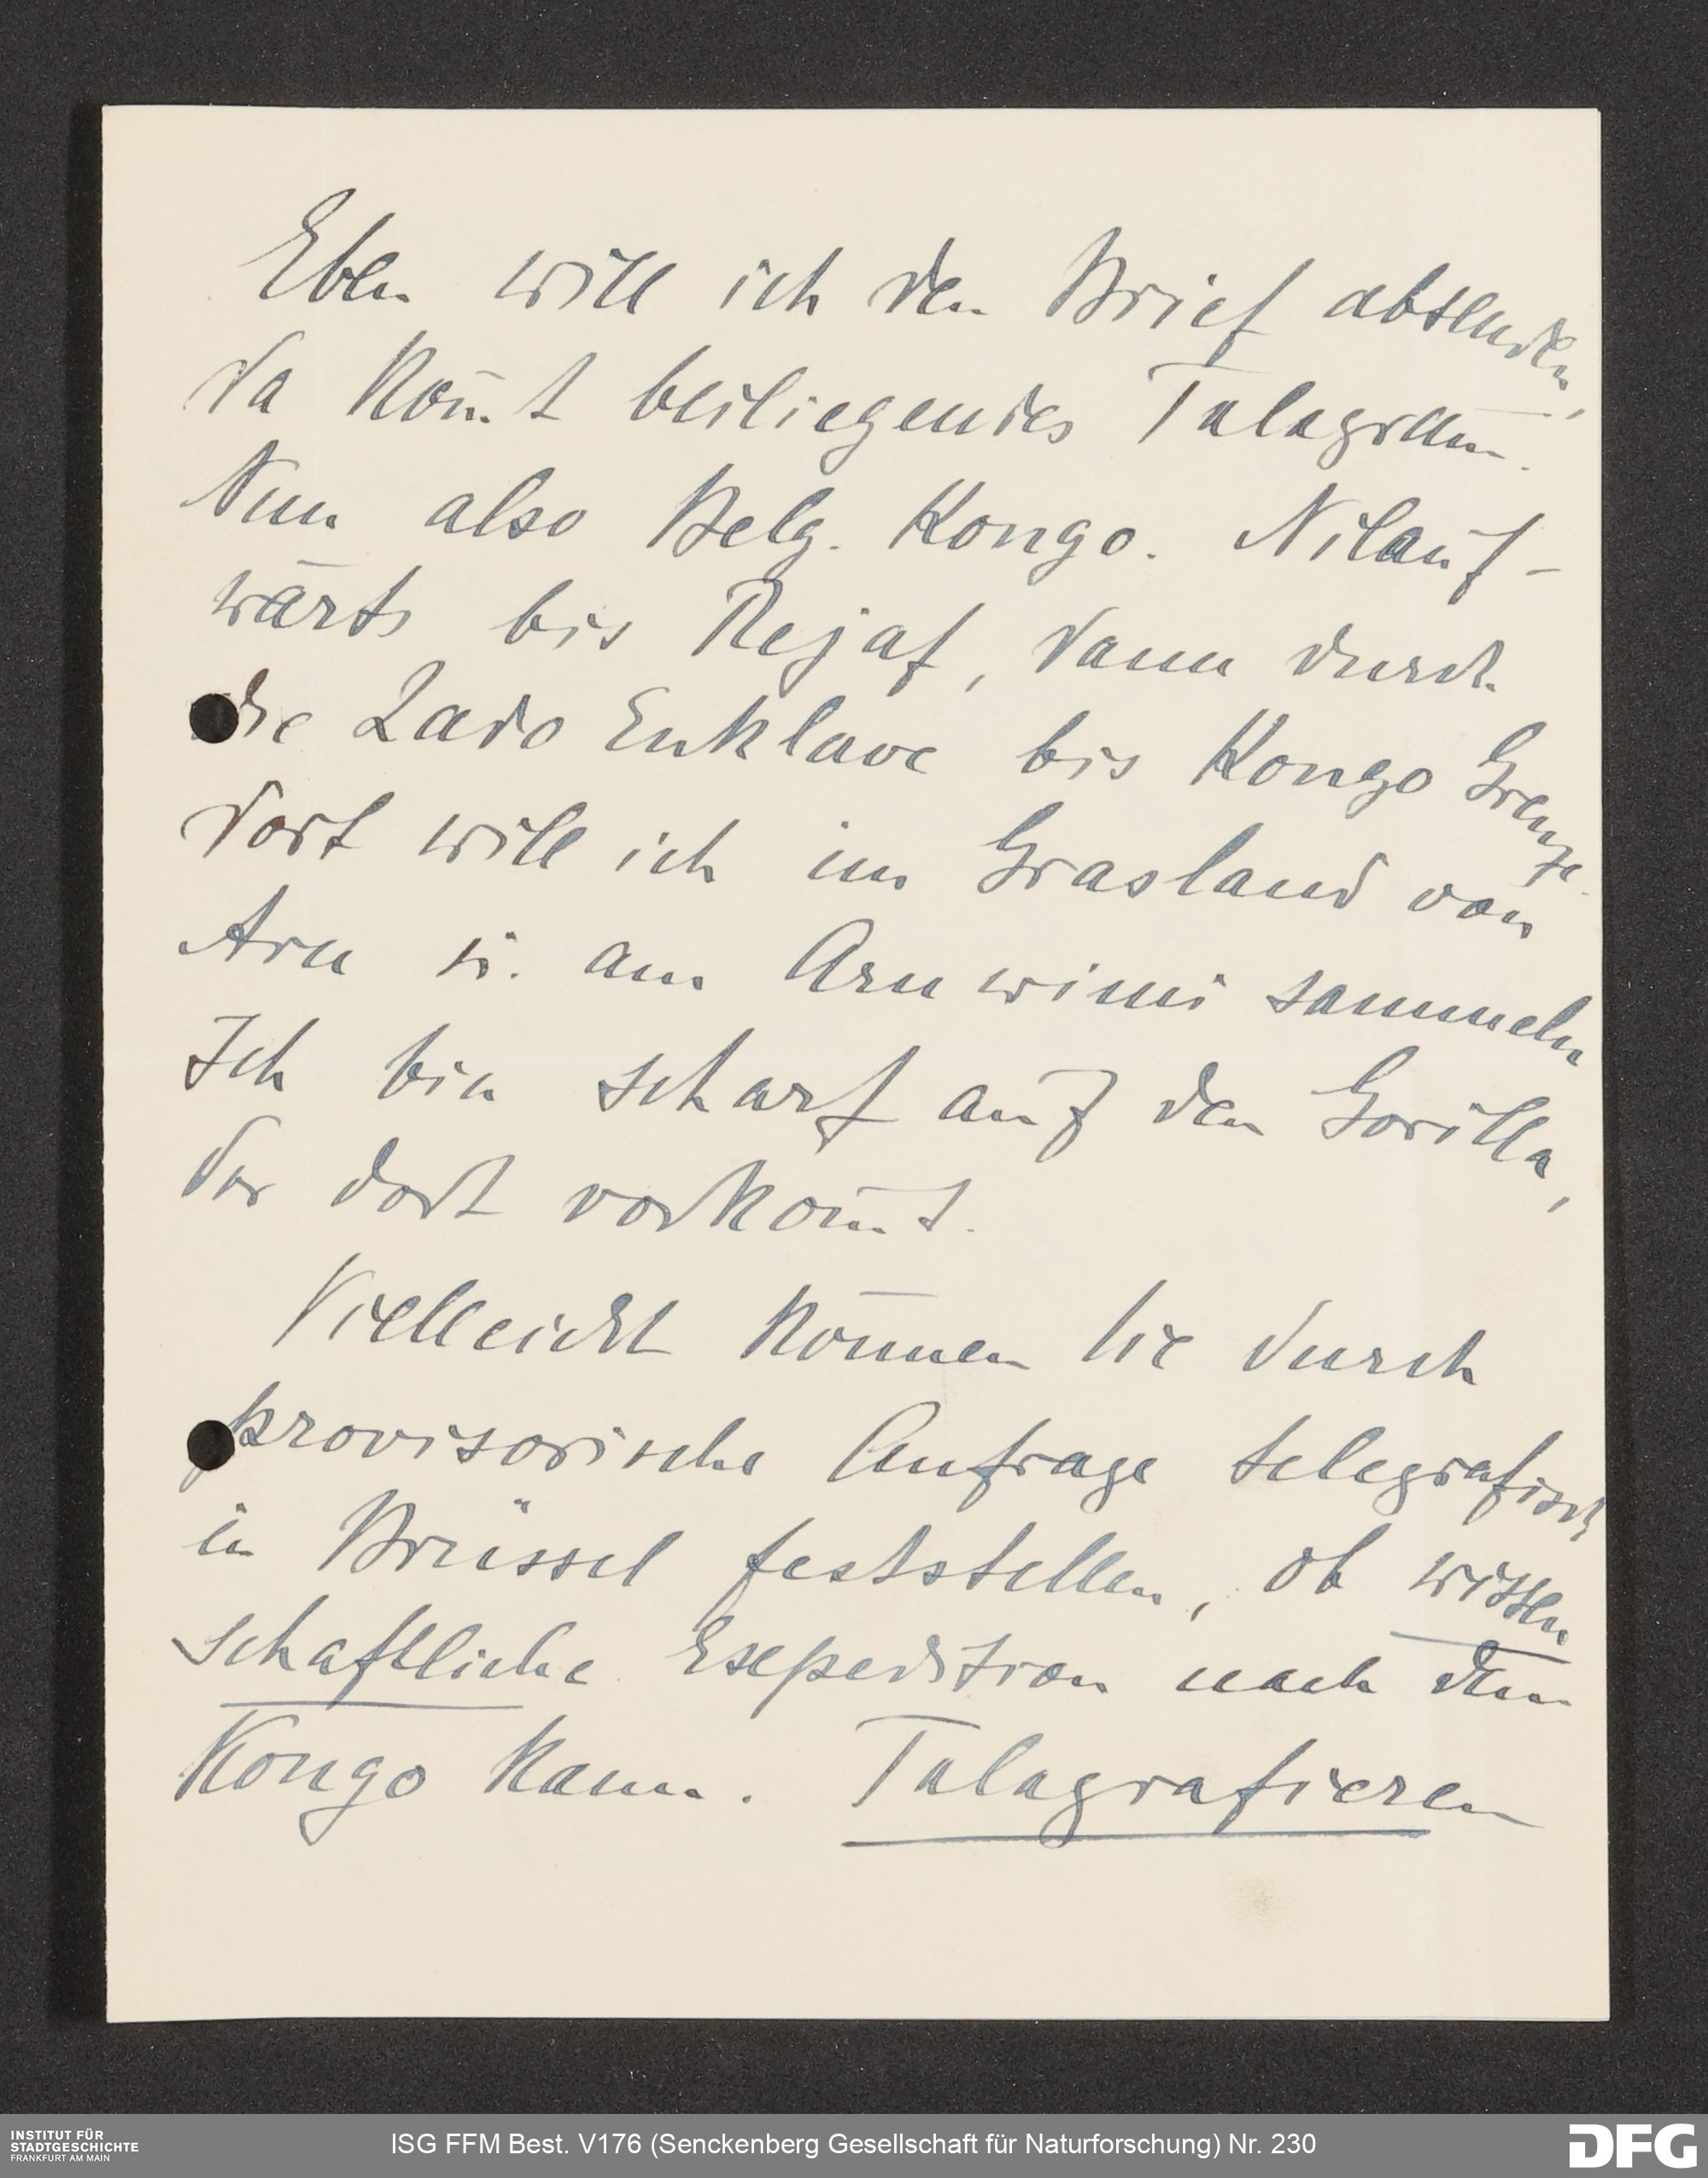 Eben will ich den Brief absenden,
da kom̅t beiliegendes Telegram̅.
Nun also Belg. Kongo. Nilauf-
wärts bis Rejaf, dann durch
die Lado Enklave bis Kongo Grenze.
Dort will ich im Grasland von
Aru u. am Aruwimi sammeln
Ich bin scharf auf den Gorilla,
der dort vorkom̅t.
Vielleicht können Sie durch
provisorische Anfrage telegrafisch
in Brüssel feststellen, ob wissen
schaftliche Expedition nach dem
Kongo kann. Telegrafieren
INSTITUT FÜR
STADTGESCHICHTE
FRANKFURT AM MAIN
ISG FFM Best. V176 (Senckenberg Gesellschaft für Naturforschung) Nr. 230
DFG